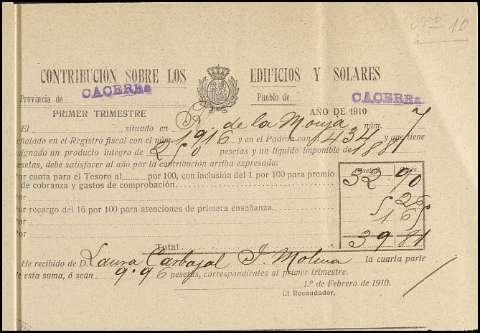 Nº 10
CONTRIBUCIÓN SOBRE LOS EDIFICIOS Y SOLARES
Provincia de CACERES Pueblo de CACERES
PRIMER TRIMESTRE AÑO DE 1910
El situado en de la Monja núm. 7
señalado en el Registro fiscal con el núm. 1916 y en el Padrón 1434 y que tiene
asignado un producto íntegro de pesetas y un líquido imponible de
pesetas, debe satisfacer al año por la contribución arriba expresada:
Por cuota para el Tesoro al por 100, con inclusión del 1 por 100 para premio
de cobranza y gastos de comprobación 32 90
Por
Por recargo del 16 por 100 para atenciones de primera enseñanza. 5 26
Por 1 65
Por
Total 39 81
He recibido de Laura Carbajal J. Molina la cuarta parte
de esta suma, ó sean 9.96 pesetas, correspondientes al primer trimestre.
1.º de Febrero de 1910.
El Recaudador,